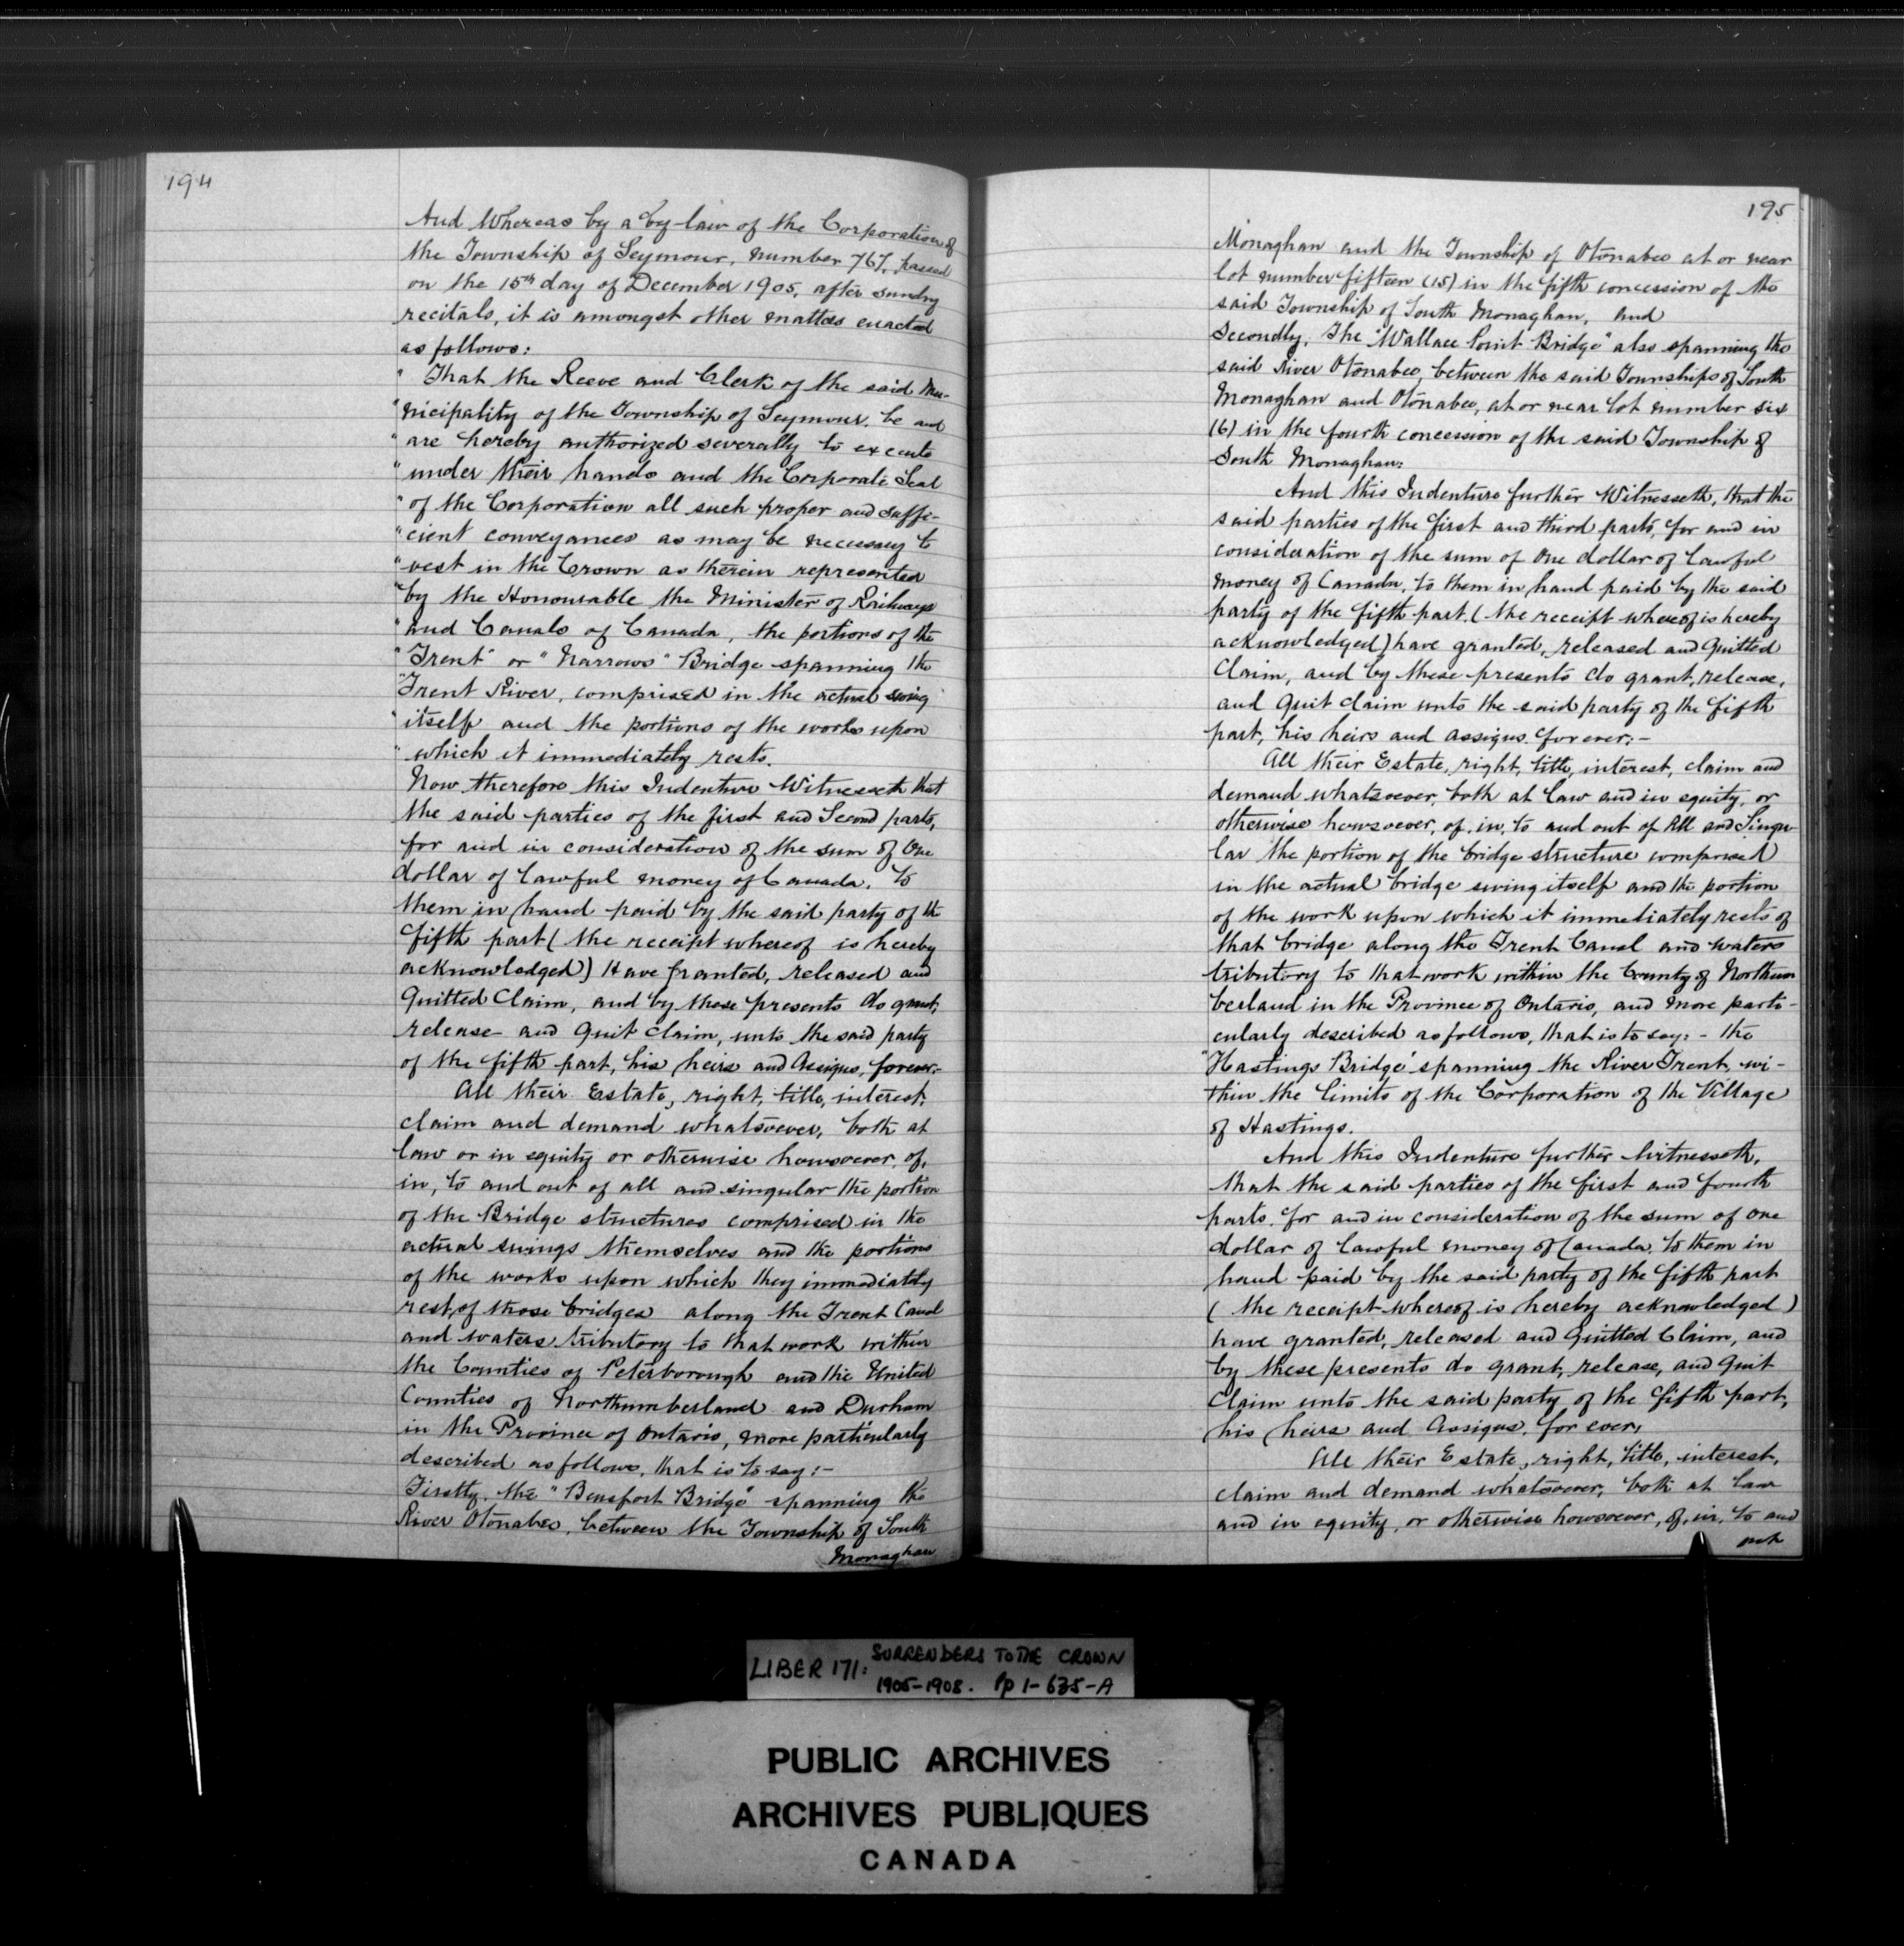 194
And Whereas by a by-law of the Corporation of
the Township of Seymour, number 767, passed
on the 15th day of December 1905, after sundry
recitals, it is amongst other matters enacted
as follows:
" That the Reeve and Clerk of the said Mu-
"nicipality of the Township of Seymour, be and
"are hereby authorized severally to execute
"under their hands and the Corporate Seal
"of the Corporation all such proper and suffi-
"cient conveyances as may be necessary to
"vest in the Crown as therein represented
"by the Honourable the Minister of Railways
"and Canals of Canada, the portions of the
"Trent" or "Narrows" Bridge spanning the
"Trent River, comprised in the actual swing
"itself and the portions of the works upon
"which it immediately rests.
Now therefore this Indenture Witnesseth that
the said parties of the first and Second parts,
for and in consideration of the sum of One
dollar of lawful money of Canada, to
them in hand paid by the said party of the
fifth part (the receipt whereof is hereby
acknowledged) Have granted, released and
Quitted Claim, and by these presents do grant,
release and Quit claim, unto the said party
of the fifth part, his heirs and Assigns, forever.-
All their Estate, right, title, interest,
claim and demand whatsoever, both at
law or in equity or otherwise howsoever, of,
in, to and out of all and singular the portion
of the Bridge structures comprised in the
actual swings themselves and the portions
of the works upon which they immediately
rest, of those bridges along the Trent Canal
and waters tributory to that work within
the Counties of Peterborough and the United
Counties of Northumberland and Durham
in the Province of Ontario, more particularly
described as follows, that is to say:-
Firstly, the "Bensfort Bridge" spanning the
River Otonabee, between the Township of South
Monaghan
195
Monaghan and the Township of Otonabee at or near
lot number fifteen (15) in the fifth concession of the
said Township of South Monaghan, and
Secondly, The "Wallace Point Bridge" also spanning the
said River Otonabee, between the said Townships of South
Monaghan and Otonabee, at or near lot number six
(6) in the fourth concession of the said Township of
South Monaghan:
And this Indenture further Witnesseth, that the
said parties of the first and third parts, for and in
consideration of the sum of One dollar of lawful
money of Canada, to them in hand paid by the said
party of the fifth part, (the receipt whereof is hereby
acknowledged) have granted, released and Quitted
Claim, and by these presents do grant, release,
and Quit claim unto the said party of the fifth
part, his heirs and assigns forever:-
All their Estate, right, title, interest, claim and
demand whatsoever, both at law and in equity, or
otherwise howsoever, of, in, to and out of All and Singu-
lar the portion of the bridge structure comprised
in the actual bridge swing itself and the portion
of the work upon which it immediately rests of
that bridge along the Trent Canal and waters
tributory to that work within the County of Northum
berland in the Province of Ontario, and more parti-
cularly described as follows, that is to say:- the
"Hastings Bridge" spanning the River Trent, wi-
thin the limits of the Corporation of the Village
of Hastings.
And this Indenture further Witnesseth,
that the said parties of the first and fourth
parts, for and in consideration of the sum of one
dollar of lawful money of Canada, to them in
hand paid by the said party of the fifth part
(the receipt whereof is hereby acknowledged)
have granted, released and Quitted Claim, and
by these presents do grant, release, and Quit
Claim unto the said party of the fifth part,
his heirs and Assigns, for ever,
All their Estate, right, title, interest,
claim and demand whatsoever, both at law
and in equity, or otherwise howsoever, of, in, to and
out
LIBER 171: SURRENDERS TO THE CROWN
1905-1908. Pp 1-635-A
PUBLIC ARCHIVES
ARCHIVES PUBLIQUES
CANADA